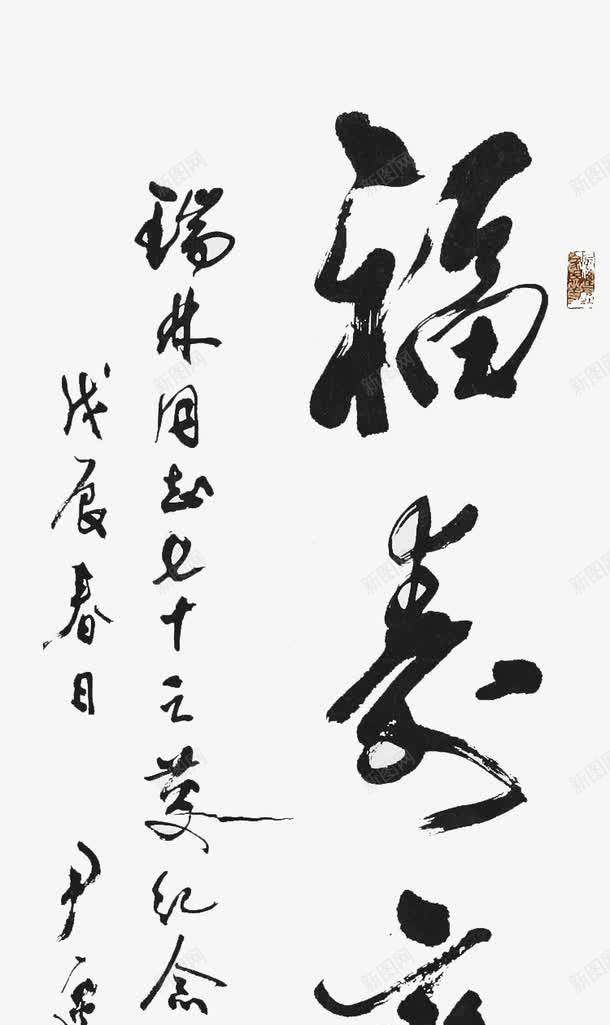 福寿
瑞林同志七十之庆纪念
戊辰春日 尹